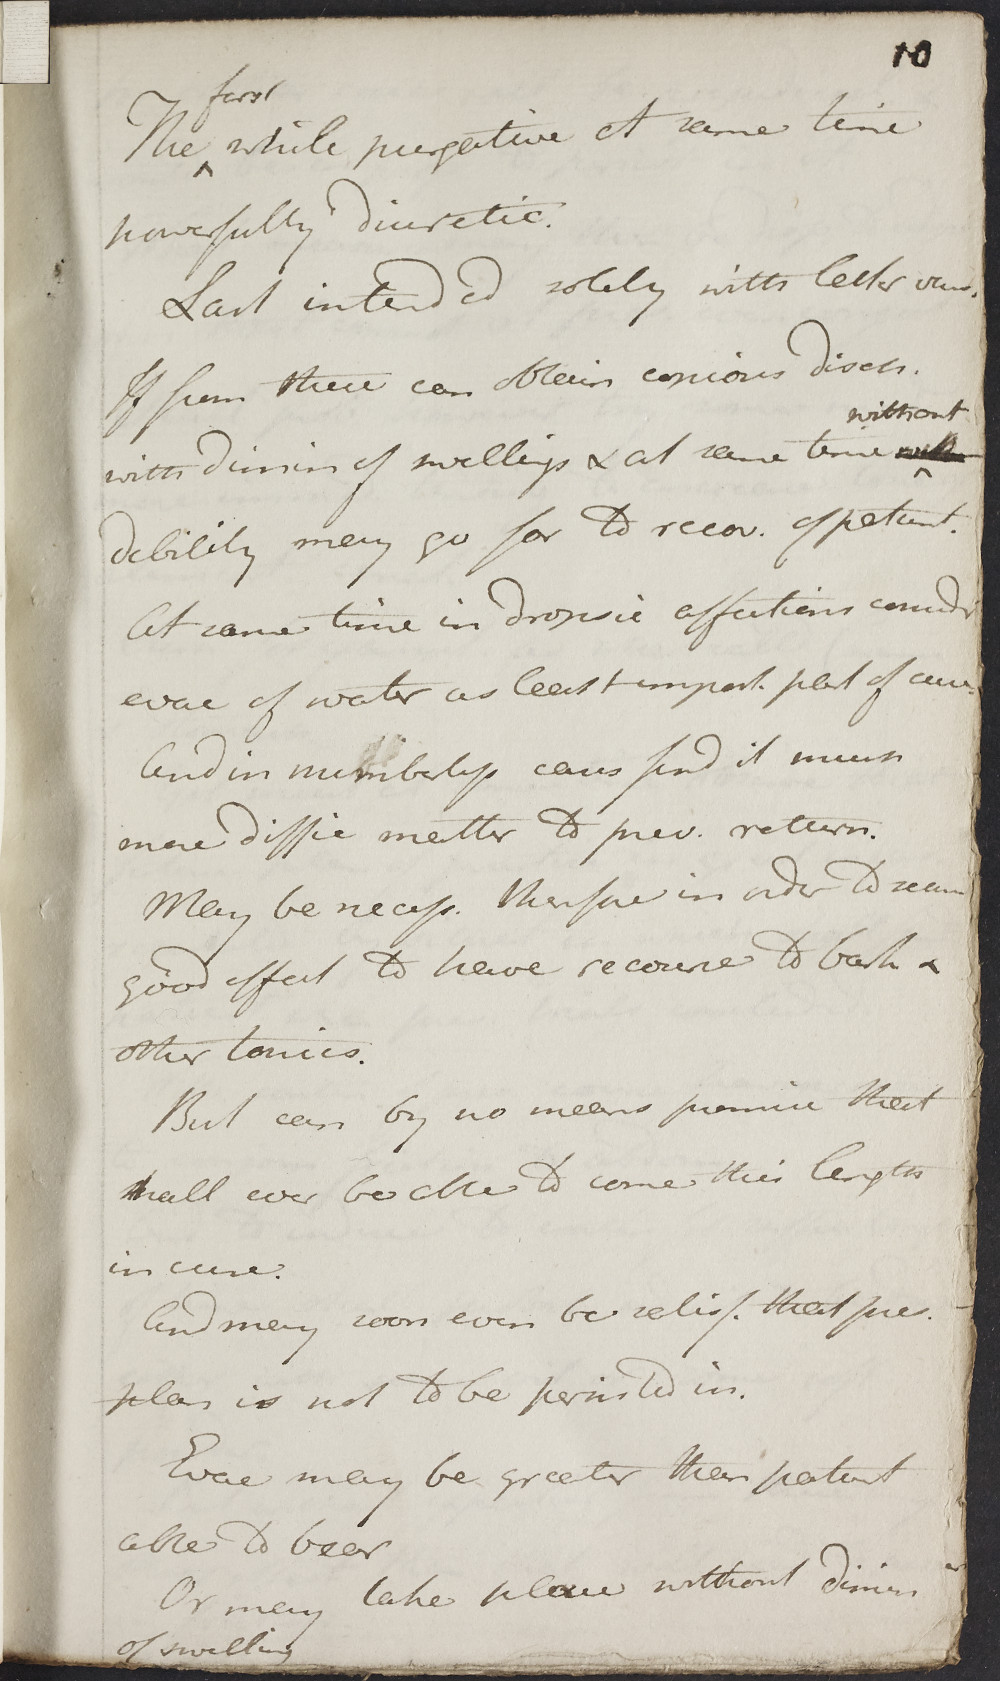 10
first
The ^ while purgative at same time
powerfully diuretic.
Last intended solely with latter view.
If from these can obtain copious disch.
without
with dimin of swellings & at same time ^
debility may go far to recov. of patient.
At same time in dropsic affections consider
evac of water as least import. part of cure.
And in numberless cases find it much
more diffic matter to prev. return.
May be necess. therefore in order to secure
good effect to have recourse to bark &
other tonics.
But can by no means promise that
shall ever be able to come this length
in cure.
And may soon even be satisf. that pres.
plan is not to be persisted in.
Evac may be greater than patient
able to bear
Or may take place without dimin
of swelling